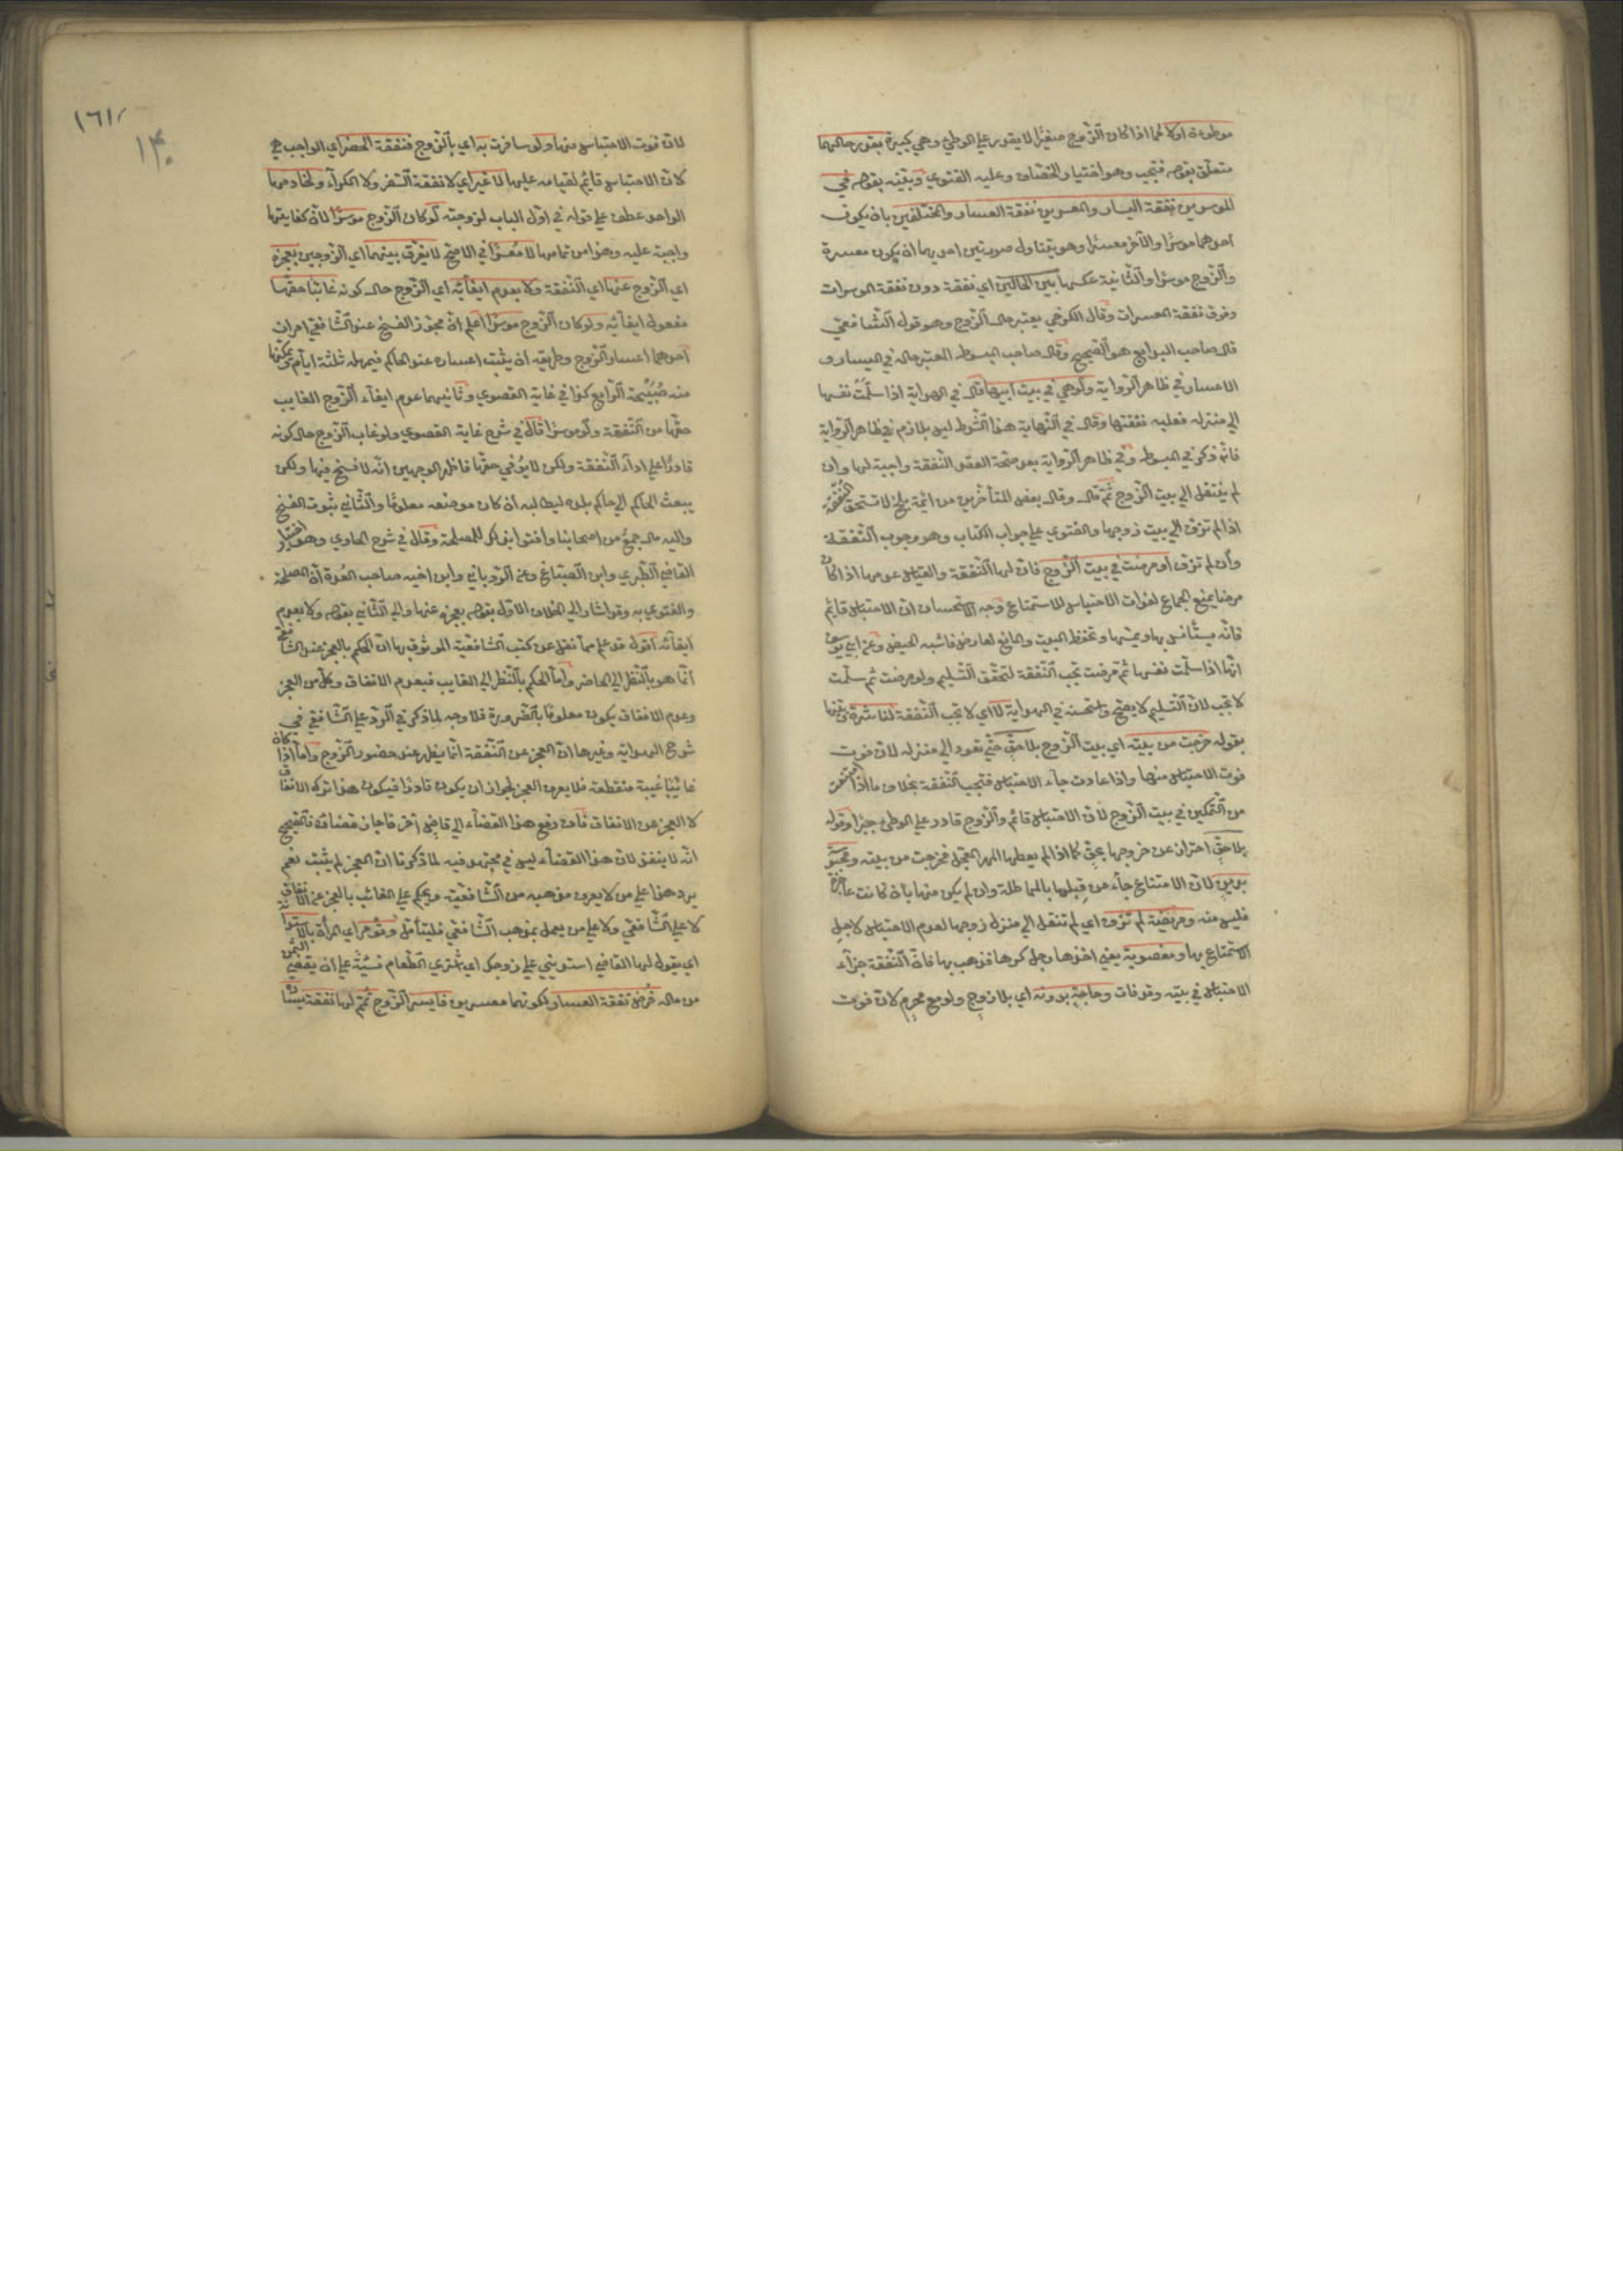 موطوءة اولا كما اذا كان الزوج صغيرا لا يقدر على الوطئ وهي كبيرة بقدر حالهما
متعلق بقوله فتجب وهو اختيار الخصاف وعليه الفتوى وبينه بقوله ففي
الموسرين نفقة اليسار والمعسرين نفقة العسار والمختلفين بان يكون
احدهما موسرا والآخر معسرا وهو يتناول صورتين احديهما ان يكون معسرة
والزوج موسرا والثانية عكسها بين الحالين اي نفقة دون نفقة الموسرات
وفوق نفقة المعسرات وقال الكرخي يعتبر حال الزوج وهو قول الشافعي
قال صاحب البدايع هو الصحيح وقال صاحب المبسوط المعتبر حاله في اليسار و
الاعسار في ظاهر الرواية ولو هي في بيت ابيها قال في الهداية اذا سلمت نفسها
الى منزله فعليه نفقتها وقال في النهاية هذا الشرط ليس بلازم في ظاهر الرواية
فانه ذكر في المبسوط وفي ظاهر الرواية بعد صحة العقد النفقة واجبة لها وان
لم ينتقل الى بيت الزوج ثم قال وقال بعض المتأخرين من ائمة بلخ لا تستحق النفقة
اذا لم تزف الى بيت زوجها والفتوى على جواب الكتاب وهو وجوب النفقة
وان لم تزف او مرضت في بيت الزوج فان لها النفقة والقياس عدمها اذا كان
مرضا يمنع الجماع لفوات الاحتباس للاستمتاع وجه الاستحسان ان الاحتباس قايم
فانه يستأنس بها ويمسها وتحفظ البيت والمانع لعارض فاشبه الحيض وعن ابي يوسف
انها اذا سلمت نفسها ثم مرضت تجب النفقة لتحقق التسليم ولو مرضت ثم سلمت
لا تجب لان التسليم لا يصح واستحسنه في الهداية لا اي لا تجب النفقة لناشزة بينها
بقوله خرجت من بيته اي بيت الزوج بلا حق حتى تعود الى منزله لان فوت
فوت الاحتباس منها واذا عادت جاء الاحتباس فتجب النفقة بخلاف ما اذا امتنعت
من التمكين في بيت الزوج لان الاحتباس قائم والزوج قادر على الوطئ جبرا وقوله
بلا حق احتراز عن خروجها بحق كما اذا لم يعطها المهر المعجل فخرجت من بيته ومحبوسة
بدين لان الامتناع جاء من قبلها بالمماطلة وان لم يكن منها بان كانت عاجزة
فليس منه ومريضة لم تزف اي لم تنتقل الى منزل زوجها لعدم الاحتباس لاجل
الاستمتاع بها ومغصوبة يعني اخذها رجل كرها فذهب بها فان النفقة جزاء
الاحتباس في بيته وقد فات وحاجة بدونه اي بلا زوج ولو مع محرم لان فوت
١٦١
١٣٠
لان فوت الاحتباس منها ولو سافرت به اي بالزوج فنفقة الحضر اي الواجب هي
لان الاحتباس قايم لقيامه عليها لا غير اي لا نفقة السفر ولا الكراء ولخادمها
الواحد عطف على قوله في اول الباب لزوجته لو كان الزوج موسرا لان كفايتها
واجبة عليه وهذا من تمامها لا معسرا في الاصح لا يفرق بينهما اي الزوجين بعجزه
اي الزوج عنها اي النفقة ولا بعدم ايفائه اي الزوج حال كونه غائبا حقها
مفعول ايفائه ولو كان الزوج موسرا اعلم ان مجوز الفسخ عند الشافعي امران
احدهما اعسار الزوج وطريقه ان يثبت اعساره عند الحاكم فيمهله ثلثة ايام ويمكنها
منه صبيحة الرابع كذا في غاية القصوى وثانيهما عدم ايفاء الزوج الغايب
حقها من النفقة ولو موسرا قال في شرح غاية القصوى ولو غاب الزوج حال كونه
قادرا على اداء النفقة ولكن لا يوفي حقها فاظهر الوجهين انه لا فسخ فيها ولكن
يبعث الحاكم الى حاكم بلده ليطالبه ان كان موضعه معلوما والثاني ثبوت الفسخ
واليه مال جمع من اصحابنا وافتوا بذلك للمصلحة وقال في شرح الحاوي وهو اختيار
القاضي الطبري وابن الصباغ وعن الروياني وابن اخيه صاحب العدة ان المصلحة
والفتوى به وقد اشار الى الخلاف الاول بقوله بعجزه عنها والى الثاني بقوله ولا بعدم
ايفائه اقول قد علم مما نقل عن كتب الشافعية الموثوق بها ان الحكم بالعجز عند الشافعي
انما هو بالنظر الى الحاضر واما الحكم بالنظر الى الغايب فبعدم الانفاق وكل من العجز
وعدم الانفاق يكون معلوما بالضرورة فلا وجه لما ذكر في الرد على الشافعي في
شروح الهداية وغيرها ان العجز عن النفقة انما يظهر عند حضور الزوج واما اذا كان
غائبا غيبة منقطعة فلا يعرف العجز لجواز ان يكون قادرا فيكون هذا ترك الانفاق
لا العجز عن الانفاق فان رفع هذا القضاء الى قاض آخر فاجاز قضاءه فالصحيح
انه لا ينفذ لان هذا القضاء ليس في مجتهد فيه لما ذكرنا ان العجز لم يثبت نعم
يرد هذا على من لا يعرف مذهبه من الشافعية ويحكم على الغائب بالعجز عن الانفاق
لا على الشافعي ولا على من يعمل بمذهب الشافعي فليتأمل وتؤمر اي المرأة بالاستدانة
اي يقول لها القاضي استديني على زوجك اي اشتري الطعام نسيئة على ان يقضي الثمن
من ماله فرض نفقة العسار لكونهما معسرين فايسر الزوج تمم لها نفقة يساره